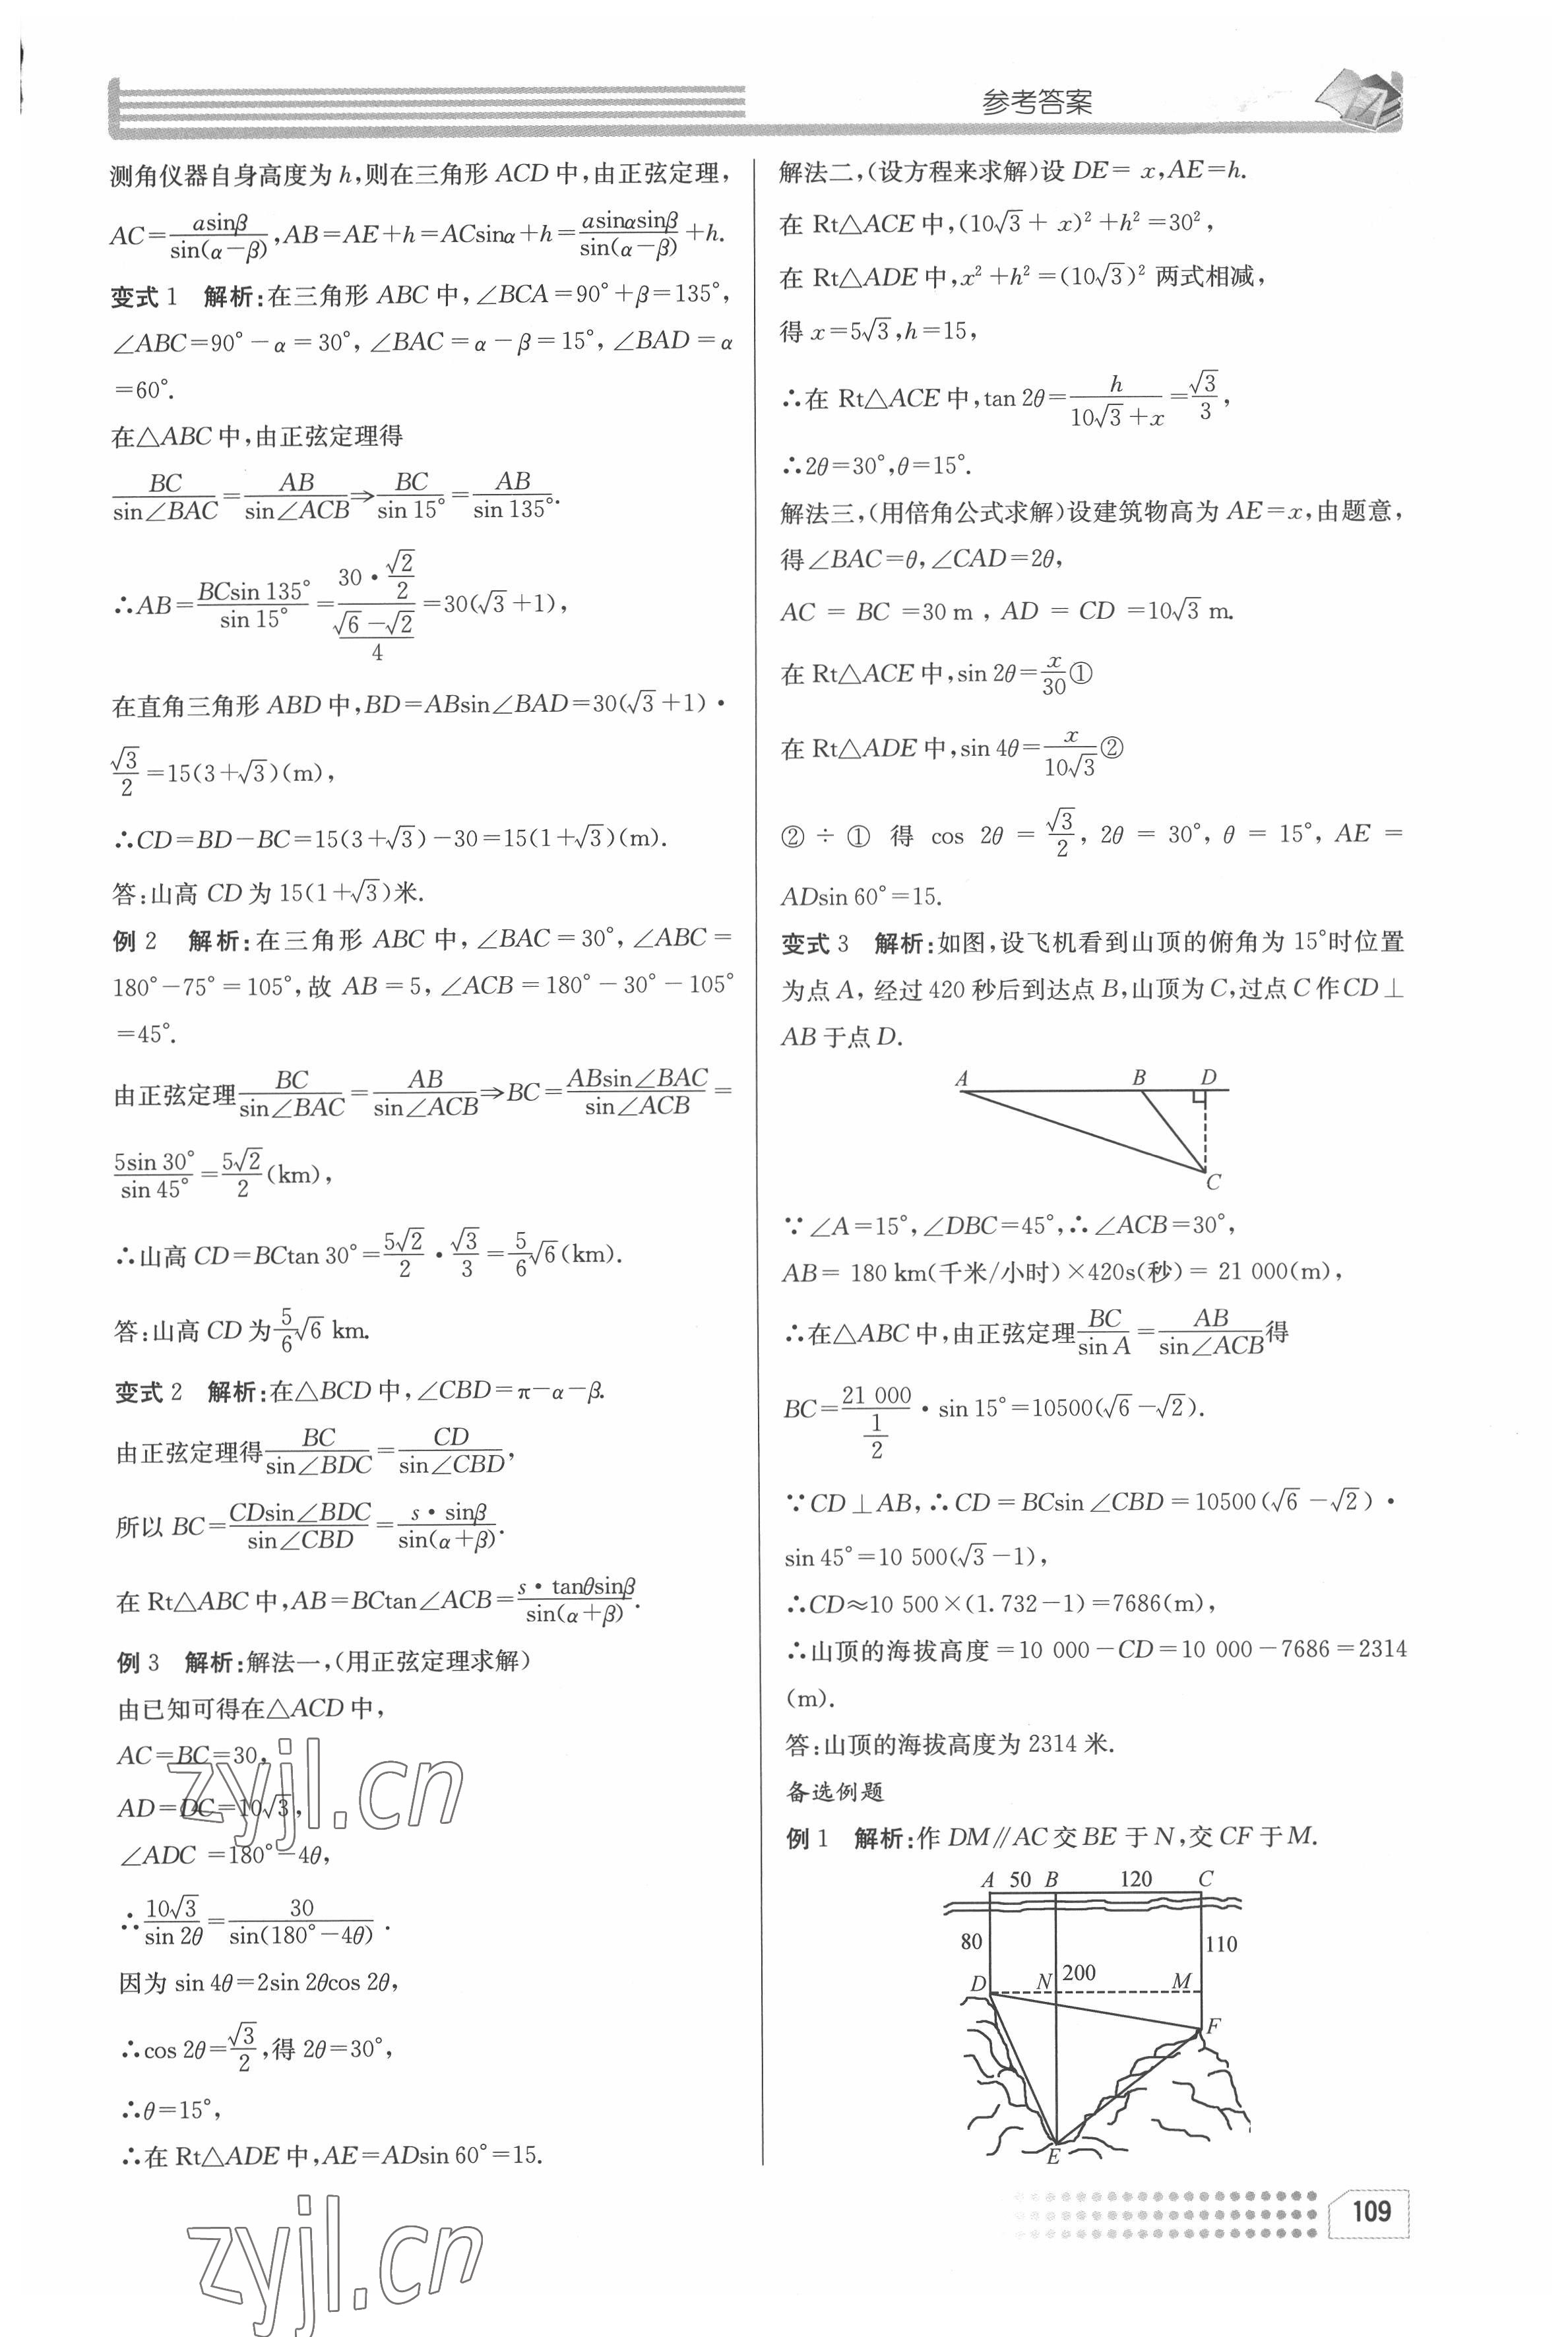 参考答案
测角仪器自身高度为 h,则在三角形 ACD 中,由正弦定理,
AC=asinβ/sin(α-β),AB=AE+h=ACsinα+h=asinαsinβ/sin(α-β)+h.
变式 1 解析:在三角形 ABC 中,∠BCA=90°+β=135°,
∠ABC=90°-α=30°,∠BAC=α-β=15°,∠BAD=α
=60°.
在△ABC 中,由正弦定理得
BC/sin∠BAC=AB/sin∠ACB⇒BC/sin 15°=AB/sin 135°.
∴AB=BCsin 135°/sin 15°=(30·√2/2)/((√6-√2)/4)=30(√3+1),
在直角三角形 ABD 中,BD=ABsin∠BAD=30(√3+1)·
√3/2=15(3+√3)(m),
∴CD=BD-BC=15(3+√3)-30=15(1+√3)(m).
答:山高 CD 为 15(1+√3)米.
例 2 解析:在三角形 ABC 中,∠BAC=30°,∠ABC=
180°-75°=105°,故 AB=5,∠ACB=180°-30°-105°
=45°.
由正弦定理BC/sin∠BAC=AB/sin∠ACB⇒BC=ABsin∠BAC/sin∠ACB=
5sin 30°/sin 45°=5√2/2(km),
∴山高 CD=BCtan 30°=5√2/2·√3/3=5/6√6(km).
答:山高 CD 为5/6√6 km.
变式 2 解析:在△BCD 中,∠CBD=π-α-β.
由正弦定理得BC/sin∠BDC=CD/sin∠CBD,
所以 BC=CDsin∠BDC/sin∠CBD=s·sinβ/sin(α+β).
在 Rt△ABC 中,AB=BCtan∠ACB=s·tanθsinβ/sin(α+β).
例 3 解析:解法一,(用正弦定理求解)
由已知可得在△ACD 中,
AC=BC=30,
AD=DC=10√3,
∠ADC =180°-4θ,
∴10√3/sin 2θ=30/sin(180°-4θ).
因为 sin 4θ=2sin 2θcos 2θ,
∴cos 2θ=√3/2,得 2θ=30°,
∴θ=15°,
∴在 Rt△ADE 中,AE=ADsin 60°=15.
解法二,(设方程来求解)设 DE= x,AE=h.
在 Rt△ACE 中,(10√3+ x)²+h²=30²,
在 Rt△ADE 中,x²+h²=(10√3)² 两式相减,
得 x=5√3,h=15,
∴在 Rt△ACE 中,tan 2θ=h/(10√3+x)=√3/3,
∴2θ=30°,θ=15°.
解法三,(用倍角公式求解)设建筑物高为 AE=x,由题意,
得∠BAC=θ,∠CAD=2θ,
AC = BC =30 m , AD = CD =10√3 m.
在 Rt△ACE 中,sin 2θ=x/30①
在 Rt△ADE 中,sin 4θ=x/10√3②
② ÷ ① 得 cos 2θ = √3/2, 2θ = 30°, θ = 15°, AE =
ADsin 60°=15.
变式 3 解析:如图,设飞机看到山顶的俯角为 15°时位置
为点 A, 经过 420 秒后到达点 B,山顶为 C,过点 C 作CD⊥
AB 于点 D.
A B D
C
∵∠A=15°,∠DBC=45°,∴∠ACB=30°,
AB= 180 km(千米/小时)×420s(秒)= 21 000(m),
∴在△ABC 中,由正弦定理BC/sin A=AB/sin∠ACB得
BC=21 000/(1/2)·sin 15°=10500(√6-√2).
∵CD⊥AB,∴CD=BCsin∠CBD=10500(√6-√2)·
sin 45°=10 500(√3-1),
∴CD≈10 500×(1.732-1)=7686(m),
∴山顶的海拔高度=10 000-CD=10 000-7686=2314
(m).
答:山顶的海拔高度为 2314 米.
备选例题
例 1 解析:作 DM∥AC 交 BE 于 N,交 CF 于 M.
A 50 B 120 C
80 110
D N 200 M
F
E
zyjl.cn
zyjl.cn
109